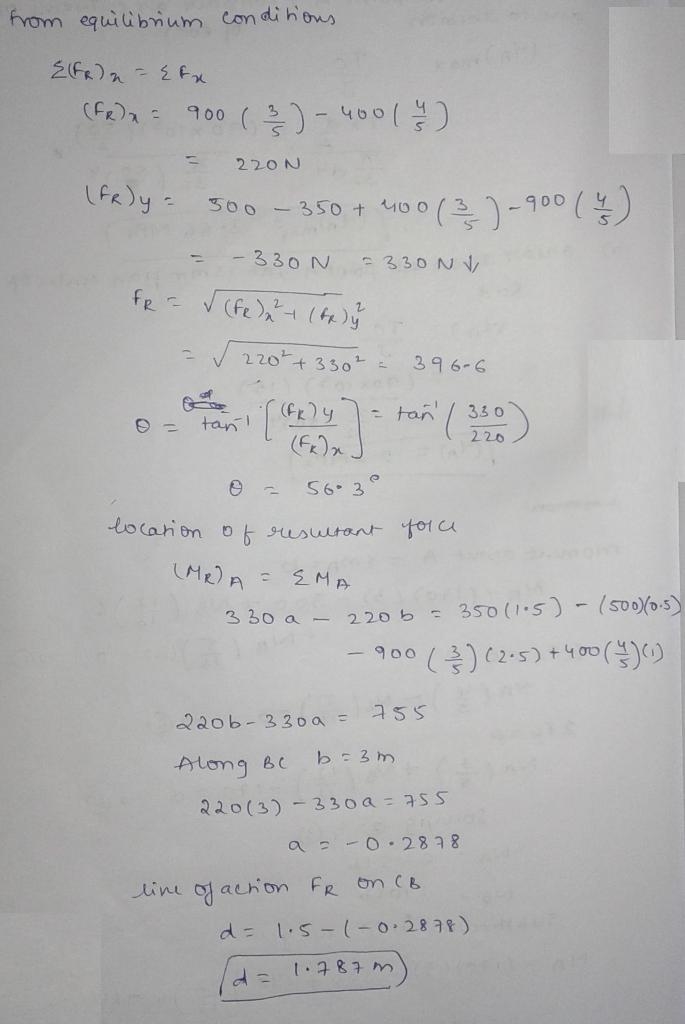 From equilibrium conditions
Σ(FR)x = ΣFx
(FR)x = 900 (3/5) - 400 (4/5)
= 220 N
(FR)y = 500 - 350 + 400 (3/5) - 900 (4/5)
= - 330 N = 330 N ↓
FR = √((FR)x² + (FR)y²)
= √(220² + 330²) = 396.6
θ = tan⁻¹ [(FR)y / (FR)x] = tan⁻¹ (330/220)
θ = 56.3°
location of resultant force
(MR)A = ΣMA
330a - 220b = 350(1.5) - (500)(0.5)
- 900 (3/5) (2.5) + 400 (4/5)(1)
220b - 330a = 755
Along BC b = 3m
220(3) - 330a = 755
a = -0.2878
line of action FR on CB
d = 1.5 - (-0.2878)
d = 1.787 m